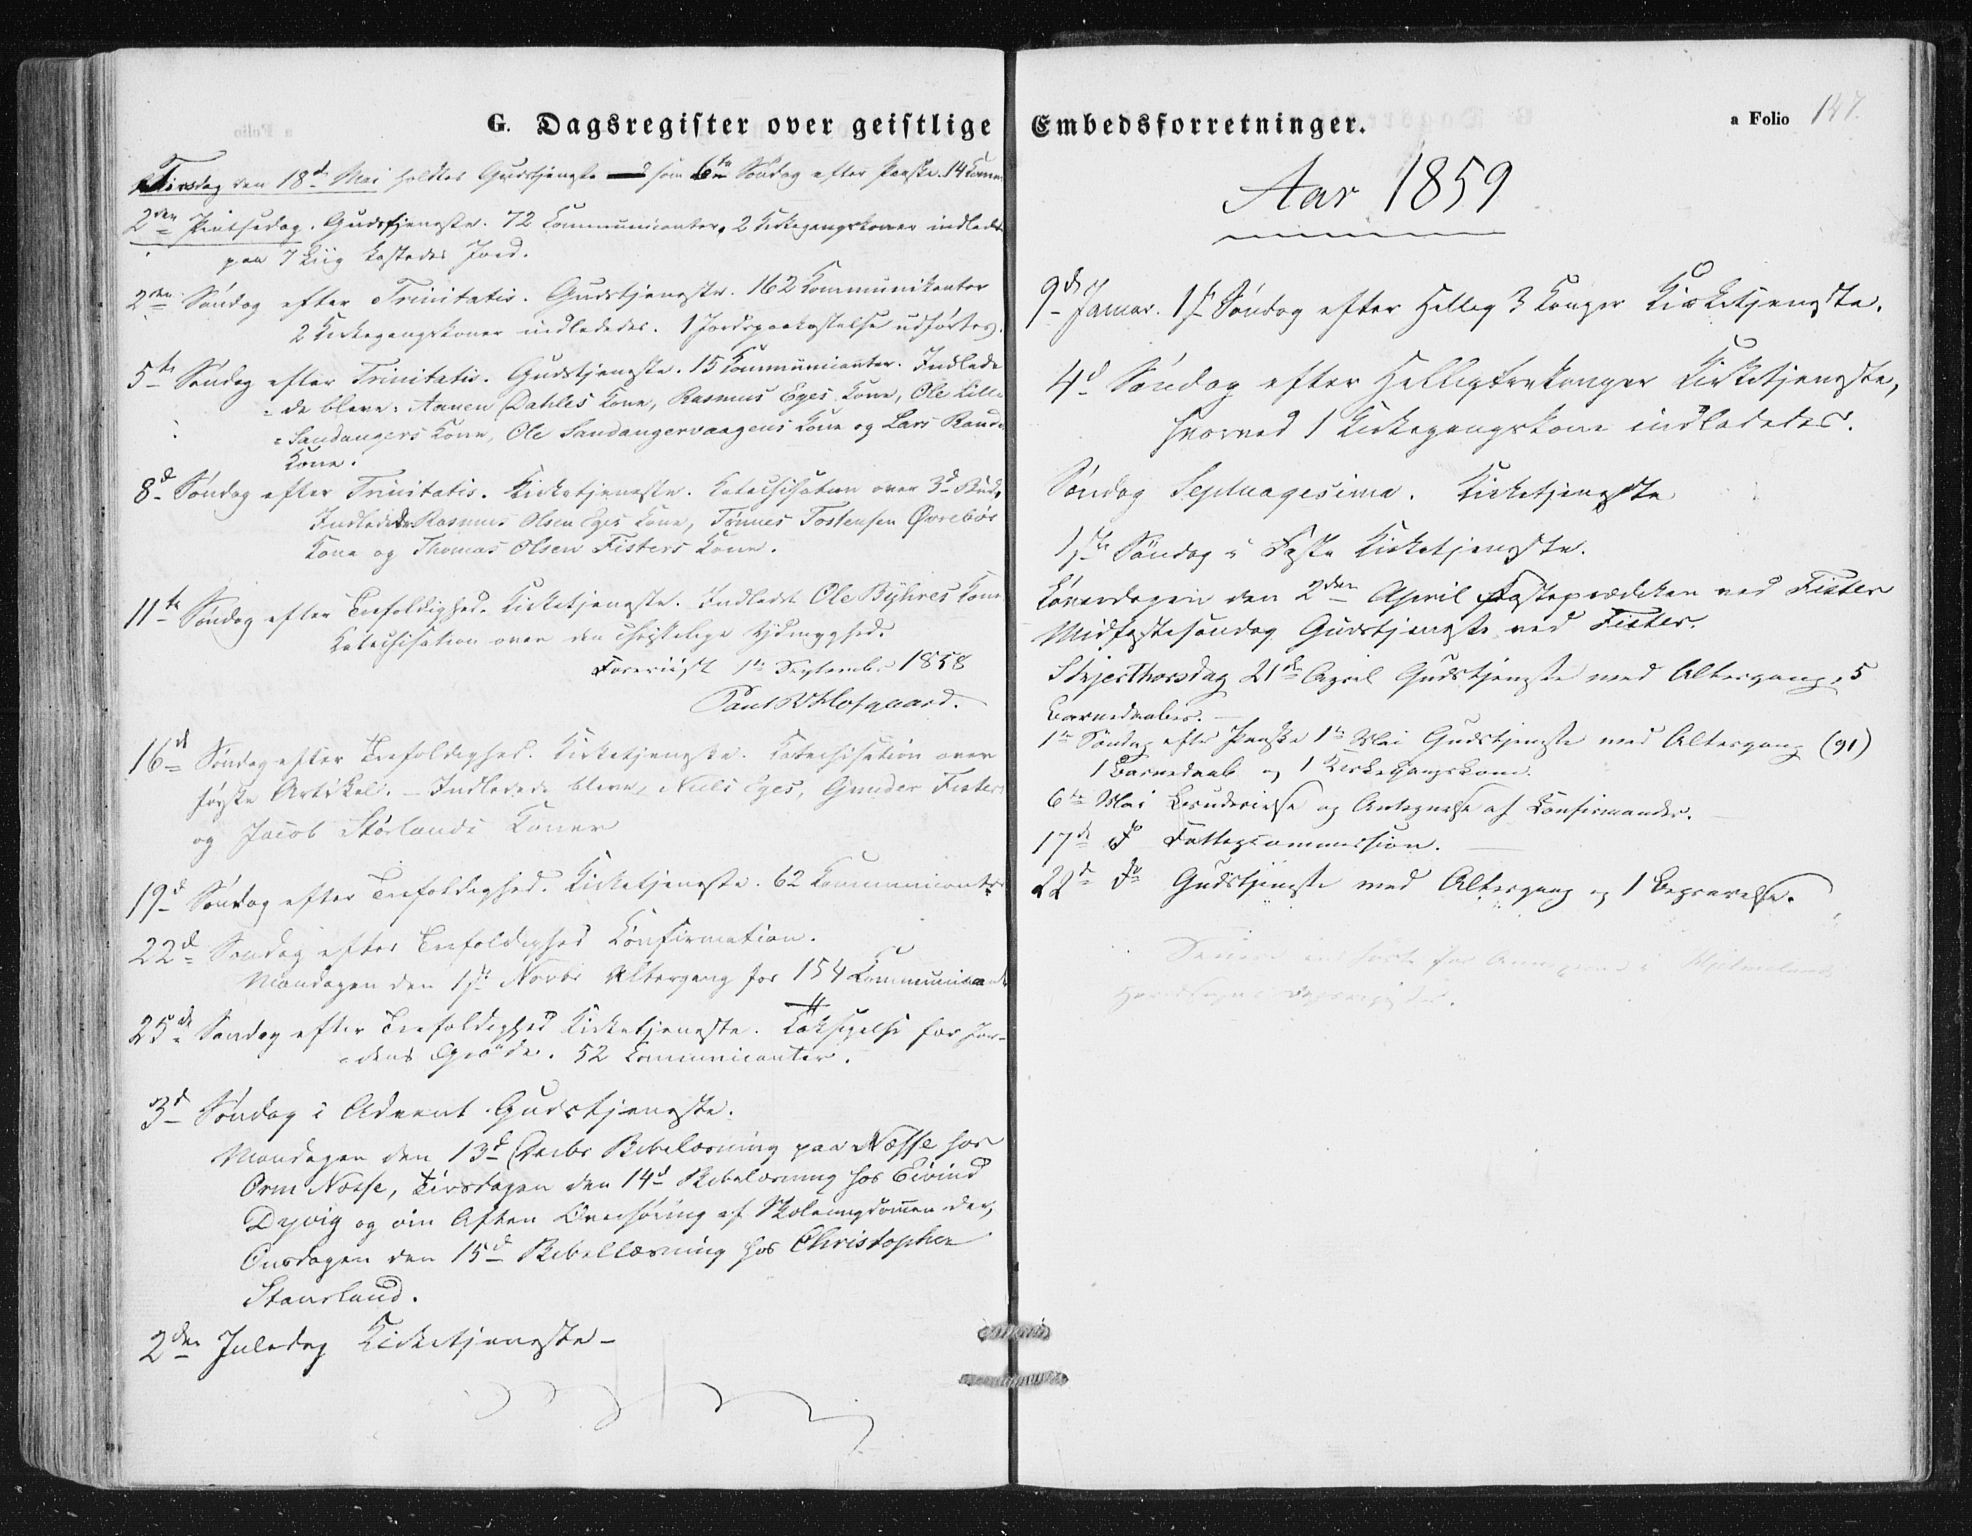 G. Dagsregister over geistlige
Tirsdag den 18d Mai holdtes Gudstjeneste som 6te Søndag efter Paaske. 14 Comm
2den Pintsedag. Gudstjeneste. 72 Communicanter. 2 Kirkegangskoner indlededes
paa 7 Liig kastedes Jord.
2den Søndag efter Trinitatis. Gudstjeneste. 162 Kommunikanter
2 Kirkegangskoner indlededes. 1 Jordspaakastelse udførtes.
5te Søndag efter Trinitatis. Gudstjeneste. 15 Communicanter. Indlede
=de bleve: Dahles Kone, Rasmus Eges Kone, Ole Lille
=Sandangers Kone, Ole Sandangervaagens Kone og Lars Rand
Kone.
8d Søndag efter Trinitatis. Kirketjeneste. Catechisation over 3d Bud.
Indlededes Rasmus Olsen Eges Kone, Tønnes Tostensen Øvrebøs
Kone og Thomas Olsen Fisters Kone.
11te Søndag efter Trefoldighed. Kirketjeneste. Indledet Ole Kone
Katechisation over den christelige Ydmyghed.
Foreviist 1te Septemb. 1858
Paul Hofgaard.
16de Søndag efter Trefoldighed. Kirketjeneste. Catechisation over
første Artikel. – Indledede bleve, Niels Eges, Gunder Fisters
og Jacob Størlands Koner
19d Søndag efter Trefoldighed. Kirketjeneste. 62 Communicanter
22d Søndag efter Trefoldighed Confirmation.
Mandagen den 1st Novbr Altergang for 154 Communicant
25de Søndag efter Trefoldighed Kirketjeneste. Taksigelse for Jor-
=dens Grøde. 52 Communicanter.
3d Søndag i Advent Gudstjeneste.
Mandagen den 13d Decbr Bibelæsning paa Næsse hos
Orm Næsse, Tirsdagen den 14d Bibelæsning hos Eivind
Dyvig og om Aften Overhøring af Skoleungdommen der,
Onsdagen den 15d Bibellæsning hos Christopher
Stausland.
2den Juledag Kirketjeneste –
Embedsforretninger.
a Folio 147.
Aar 1859
9de Januar. 1st Søndag efter Hellig 3 Konger Kirketjeneste.
4d Søndag efter Helligtrekonger Kirketjeneste,
hvorved 1 Kirkegangskone indlededes.
Søndag Septuagesima. Kirketjeneste
1ste Søndag i Faste Kirketjeneste.
Løverdagen den 2den April Fasteprædiken ved Fister
Midfastesøndag Gudstjeneste ved Fister.
Skjærthorsdag 21de April Gudstjeneste med Altergang, 5
Barnedaaber. –
1te Søndag efter Paaske 1te Mai Gudstjeneste med Altergang (91)
1 Barnedaab og 1 Kirkegangskone.
6te Mai og Antegnelse af Confirmander.
17de Do Fattigcommission.
22de Do Gudstjeneste med Altergang og 1 Begravelse.
i Hjelmelands